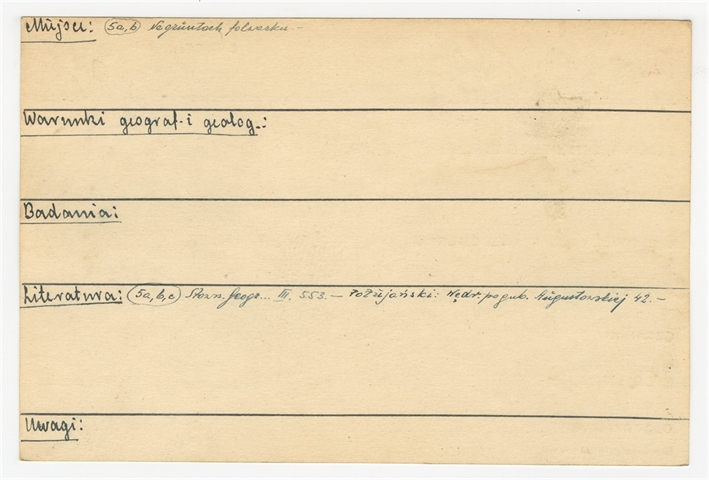 Miejsce: (5a,b) Na gruntach folwarku –
Warunki geograf. i geolog.:
Badania:
Literatura: (5a,b,c) Słown. Geogr... III. 553. – Połujański: Wędr. po gub. Augustowskiej 42. –
Uwagi: